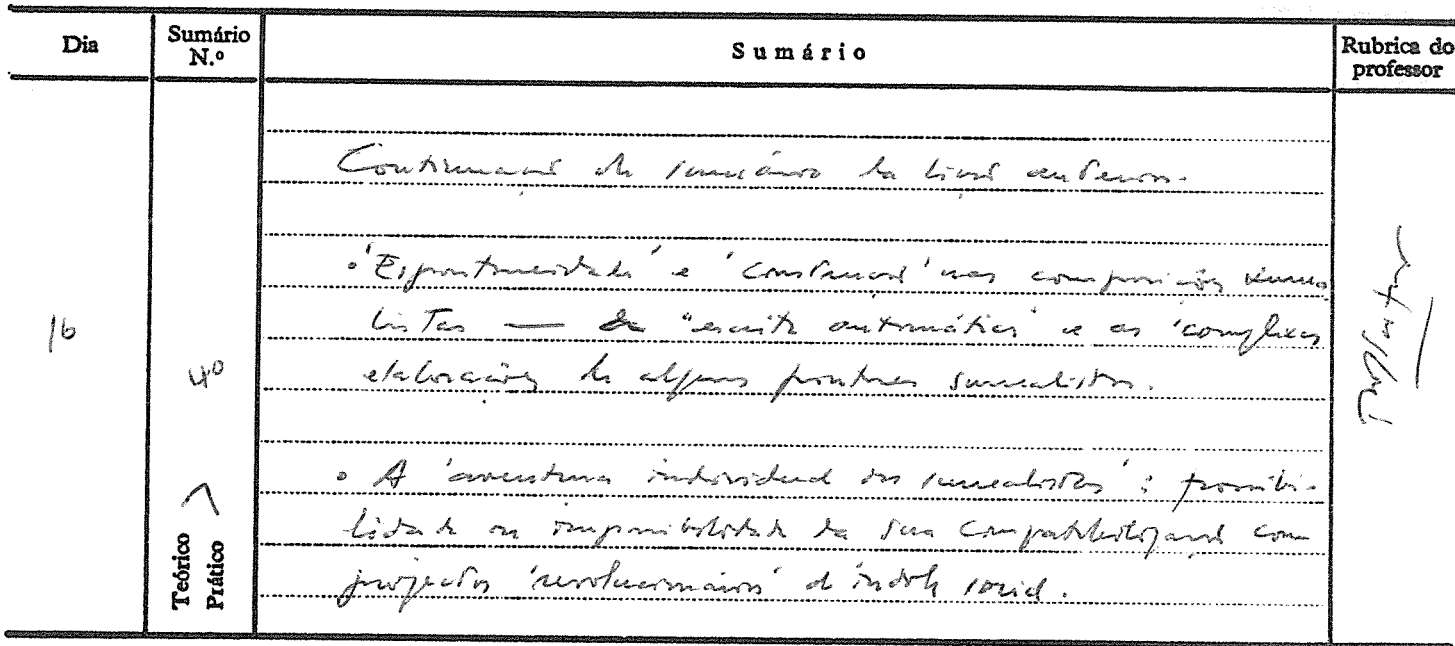 Dia
Sumário N.º
Sumário
Rubrica do professor
16
4º
Teórico
Prático
Continuação do sumário da lição anterior.
• 'Espontaneidade' e 'Construção' nas composições surrea
listas — a "escrita automática" e as 'complexas
elaborações de alguns pintores surrealistas.
• A 'aventura individual dos surrealistas': possibi-
lidade ou impossibilidade da sua compatibilização com
projectos 'revolucionários' d'índole social.